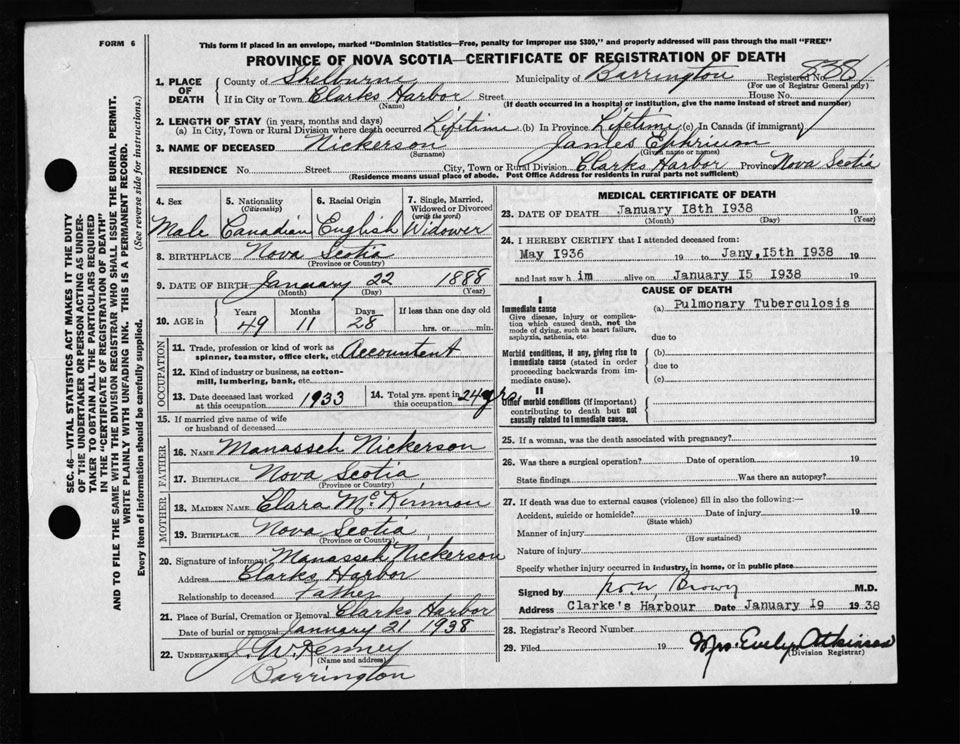 FORM 6
This form if placed in an envelope, marked "Dominion Statistics—Free, penalty for improper use $300," and properly addressed will pass through the mail "FREE"
PROVINCE OF NOVA SCOTIA—CERTIFICATE OF REGISTRATION OF DEATH
1. PLACE OF DEATH County of Shelburne Municipality of Barrington Registered No. 838
(For use of Registrar General only)
If in City or Town Clarks Harbor Street House No.
(Name) (If death occurred in a hospital or institution, give the name instead of street and number)
2. LENGTH OF STAY (in years, months and days)
(a) In City, Town or Rural Division where death occurred Lifetime (b) In Province Lifetime (c) In Canada (if immigrant)
3. NAME OF DECEASED Nickerson James Ephrium
(Surname) (Given name or names)
RESIDENCE No. Street City, Town or Rural Division Clarks Harbor Province Nova Scotia
(Residence means usual place of abode. Post Office Address for residents in rural parts not sufficient)
4. Sex 5. Nationality (Citizenship) 6. Racial Origin 7. Single, Married, Widowed or Divorced (write the word)
Male Canadian English Widower
8. BIRTHPLACE Nova Scotia
(Province or Country)
9. DATE OF BIRTH January 22 1888
(Month) (Day) (Year)
10. AGE in Years Months Days If less than one day old
49 11 28 hrs. or min.
OCCUPATION
11. Trade, profession or kind of work as spinner, teamster, office clerk, etc. Accountent
12. Kind of industry or business, as cotton-mill, lumbering, bank, etc.
13. Date deceased last worked at this occupation 1933 14. Total yrs. spent in this occupation 24 yrs
15. If married give name of wife or husband of deceased
FATHER
16. NAME Manasseh Nickerson
17. BIRTHPLACE Nova Scotia
(Province or Country)
MOTHER
18. MAIDEN NAME Clara McKinnon
19. BIRTHPLACE Nova Scotia
(Province or Country)
20. Signature of informant Manasseh Nickerson
Address Clarks Harbor
Relationship to deceased Father
21. Place of Burial, Cremation or Removal Clarks Harbor
Date of burial or removal January 21 1938
22. UNDERTAKER J. W. Kenney
(Name and address)
Barrington
MEDICAL CERTIFICATE OF DEATH
23. DATE OF DEATH January 18th 1938 19
(Month) (Day) (Year)
24. I HEREBY CERTIFY that I attended deceased from:
May 1936 19 to Jany,15th 1938 19
and last saw h im alive on January 15 1938 19
CAUSE OF DEATH
I
Immediate cause (a) Pulmonary Tuberculosis
Give disease, injury or complication which caused death, not the mode of dying, such as heart failure, asphyxia, asthenia, etc.
due to
Morbid conditions, if any, giving rise to immediate cause (stated in order proceeding backwards from immediate cause).
(b)
due to
(c)
II
Other morbid conditions (if important) contributing to death but not causally related to immediate cause.
25. If a woman, was the death associated with pregnancy?
26. Was there a surgical operation? Date of operation 19
State findings Was there an autopsy?
27. If death was due to external causes (violence) fill in also the following:—
Accident, suicide or homicide? Date of injury 19
(State which)
Manner of injury
(How sustained)
Nature of injury
Specify whether injury occurred in industry, in home, or in public place
Signed by Brown M.D.
Address Clarke's Harbour Date January 19 1938
28. Registrar's Record Number
29. Filed 19 Mrs. Evelyn Atkinson
(Division Registrar)
SEC. 46—VITAL STATISTICS ACT MAKES IT THE DUTY
OF THE UNDERTAKER OR PERSON ACTING AS UNDER-
TAKER TO OBTAIN ALL THE PARTICULARS REQUIRED
IN THE "CERTIFICATE OF REGISTRATION OF DEATH"
AND TO FILE THE SAME WITH THE DIVISION REGISTRAR WHO SHALL ISSUE THE BURIAL PERMIT.
WRITE PLAINLY WITH UNFADING INK. THIS IS A PERMANENT RECORD.
Every item of information should be carefully supplied. (See reverse side for instructions.)